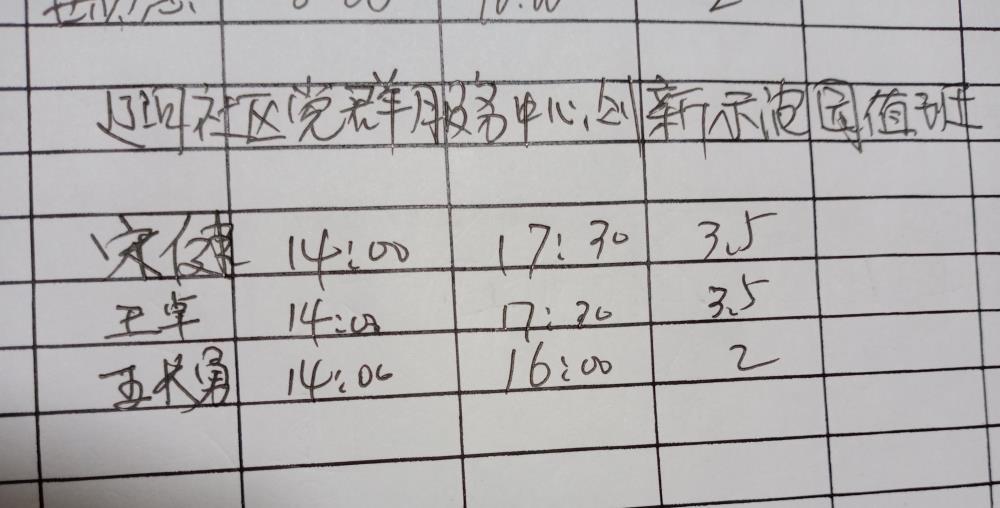 社区党群服务中心创新示范园值班
宋健 14:00 17:30 3.5
王卓 14:00 17:30 3.5
王长勇 14:00 16:00 2